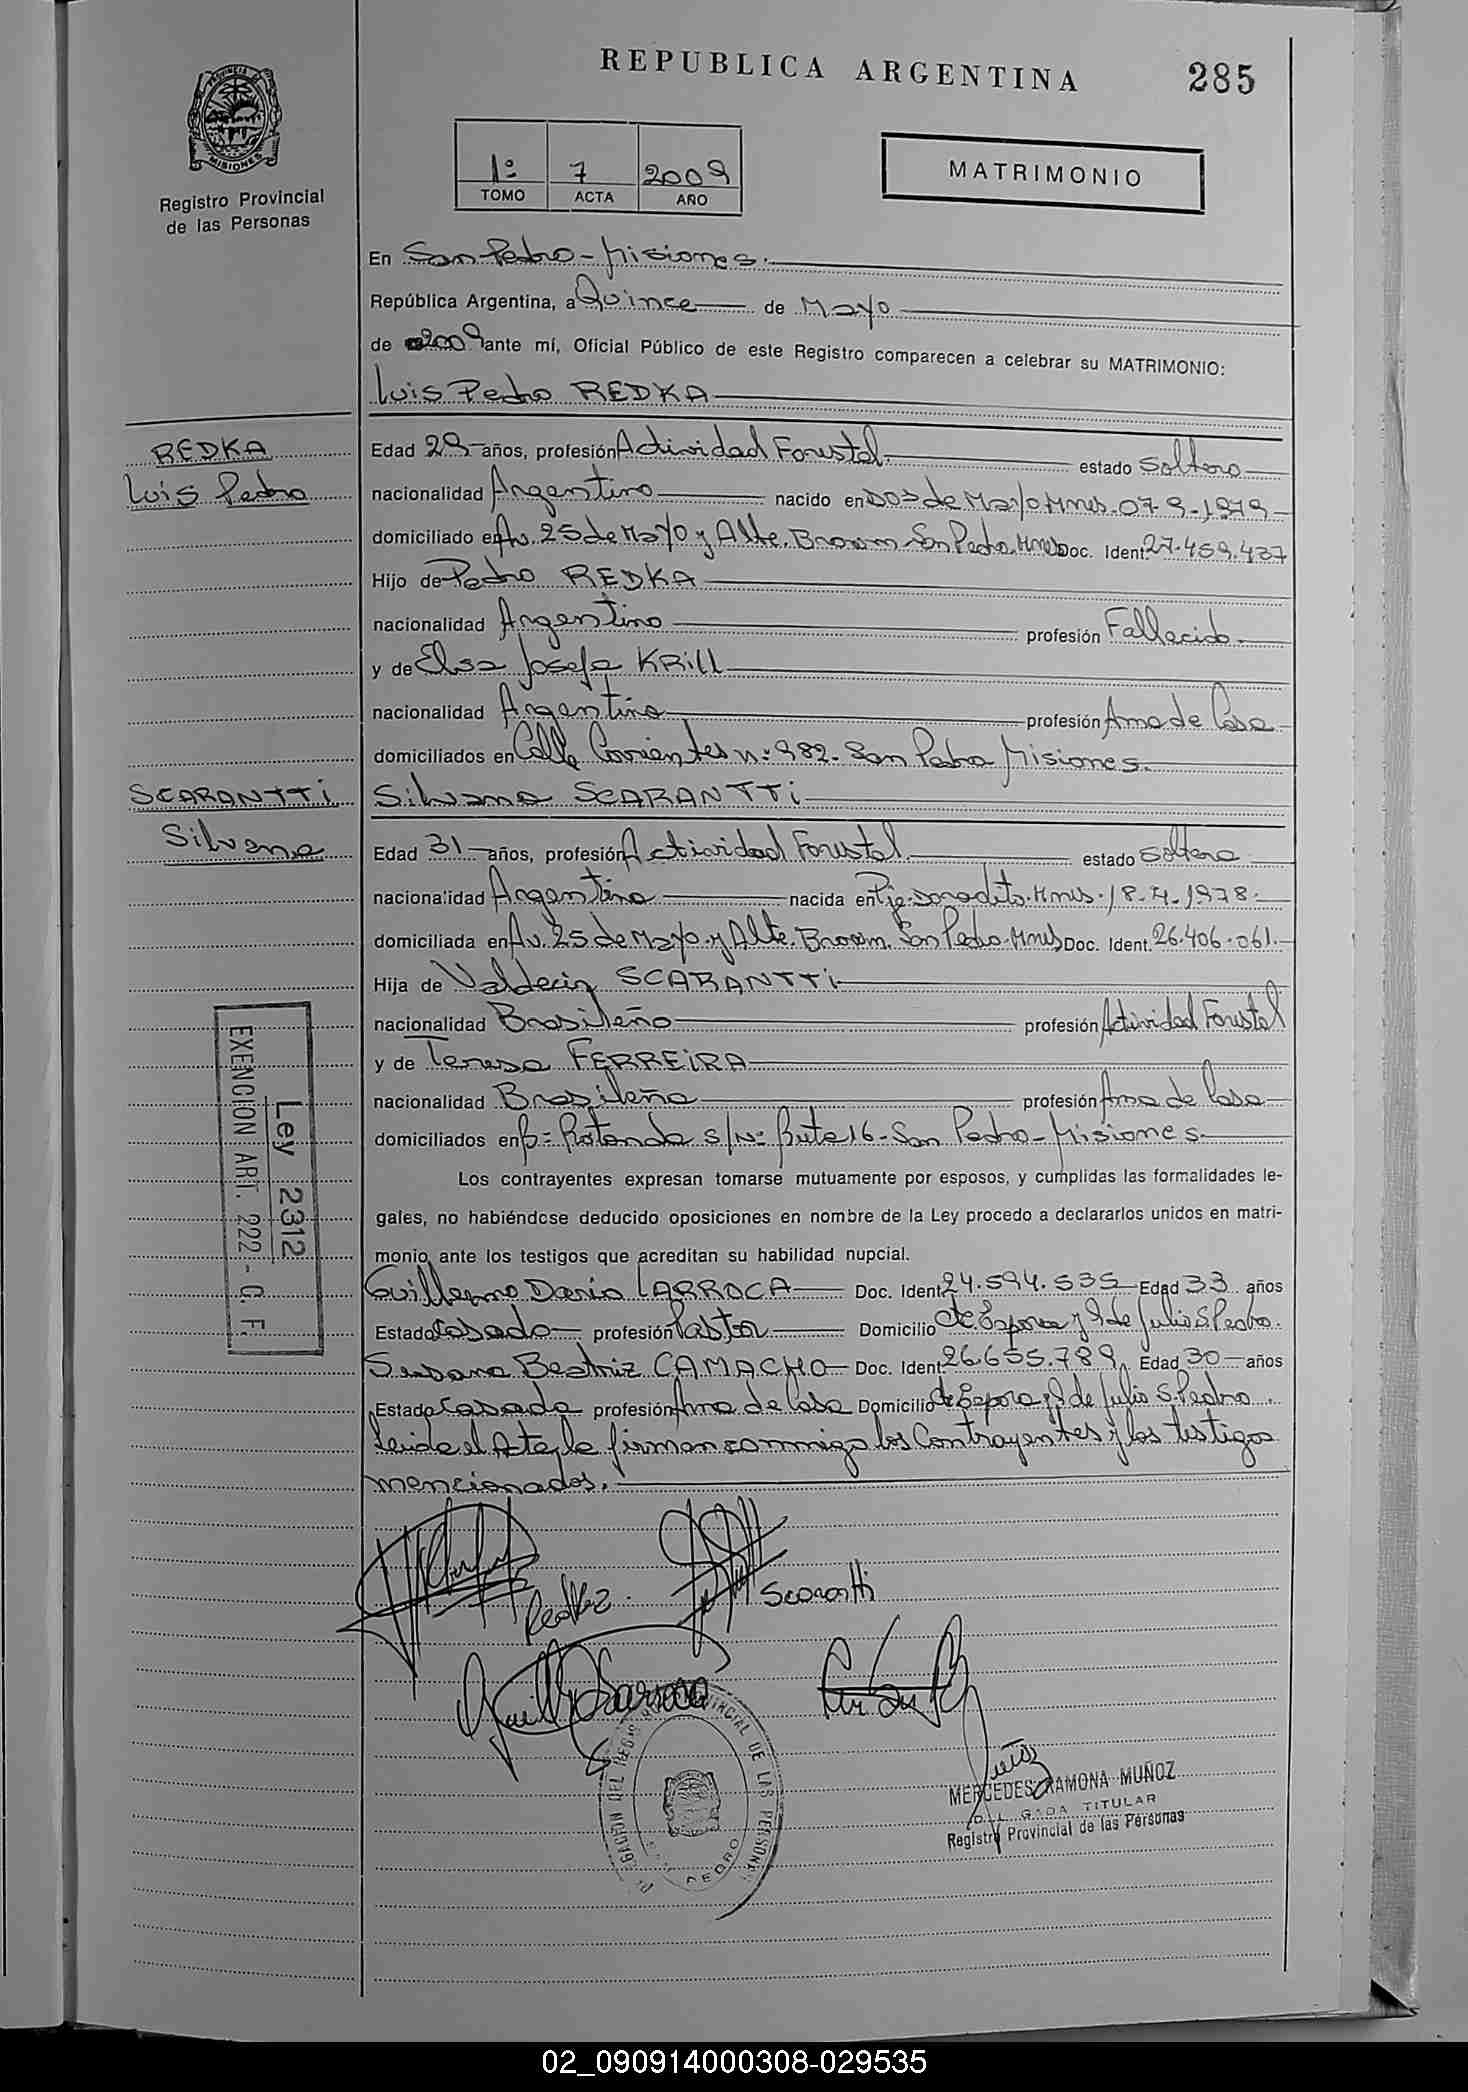 REPUBLICA ARGENTINA
285
PROVINCIA DE
MISIONES
Registro Provincial
de las Personas
1º 7 2009
TOMO ACTA AÑO
MATRIMONIO
En San Pedro - Misiones.
República Argentina, a Quince de Mayo
de 2009 ante mí, Oficial Público de este Registro comparecen a celebrar su MATRIMONIO:
Luis Pedro REDKA
REDKA
Luis Pedro
Edad 29 años, profesión Actividad Forestal estado soltero
nacionalidad Argentino nacido en Dos de Mayo Mnes. 07-9-1979
domiciliado en Av. 25 de Mayo y Alte. Brown San Pedro. Mnes Doc. Ident. 27.459.437
Hijo de Pedro REDKA
nacionalidad Argentino profesión Fallecido
y de Elsa Josefa KRILL
nacionalidad Argentina profesión Ama de Casa
domiciliados en Calle Corrientes nº 982. San Pedro Misiones.
SCARANTTI
Silvana
Silvana SCARANTTI
Edad 31 años, profesión Actividad Forestal estado soltera
nacionalidad Argentina nacida en Pje. Mnes. 18-4-1978
domiciliada en Av. 25 de Mayo y Alte. Brown. San Pedro. Mnes Doc. Ident. 26.406.061.
Hija de Valdecir SCARANTTI
nacionalidad Brasileño profesión Actividad Forestal
y de Teresa FERREIRA
nacionalidad Brasileña profesión Ama de Casa
domiciliados en Bº Rotonda s/Nº Ruta 16 - San Pedro - Misiones.
Ley 2312
EXENCION ART. 222 - C. F.
Los contrayentes expresan tomarse mutuamente por esposos, y cumplidas las formalidades le-
gales, no habiéndose deducido oposiciones en nombre de la Ley procedo a declararlos unidos en matri-
monio ante los testigos que acreditan su habilidad nupcial.
Guillermo Dario LARROCA Doc. Ident. 24.594.535 Edad 33 años
Estado Casado profesión Pastor Domicilio Cte. Espora y 9 de Julio S. Pedro.
Susana Beatriz CAMACHO Doc. Ident. 26.655.789 Edad 30 años
Estado Casada profesión Ama de Casa Domicilio Cte Espora y 9 de Julio S. Pedro.
Leida el Acta, la firman conmigo los Contrayentes y los testigos
mencionados.
Redka
Scarantti
Guille Larroca
DELEGACION DEL REGISTRO PROVINCIAL DE LAS PERSONAS
SAN PEDRO
MERCEDES RAMONA MUÑOZ
DELEGADA TITULAR
Registro Provincial de las Personas
02_090914000308-029535